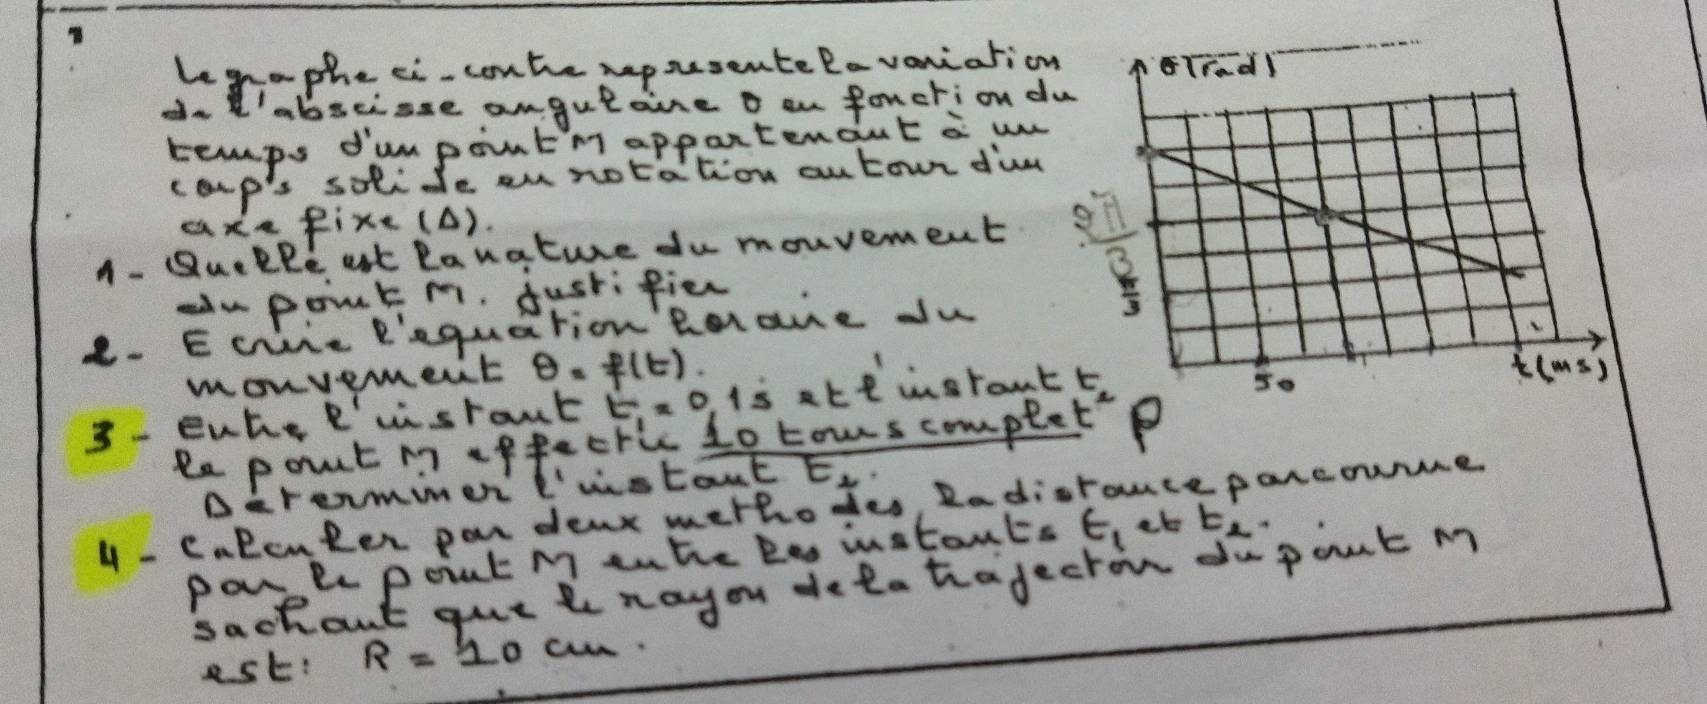 1
Le graphe ci-contre représente la variation
de l'abscisse angulaire θ en fonction du
temps d'un point M appartenant à un
corps solide en rotation autour d'un
axe fixe (Δ).
1- Quelle est la nature du mouvement
du point M. Justifier
2- Ecrire l'equation horaire du
mouvement θ = f(t).
3- entre l'instant t₁ = 0,1s et l'instant t₂
le point M effectue 10 tours complet
Déterminer l'instant t₂.
4- Calculer par deux methodes, la distance parcourue
par le point M entre les instants t₁ et t₂.
sachant que le rayon de la trajectoir du point M
est: R = 10 cm.
θ(rad)
2π
3
50
t(ms)